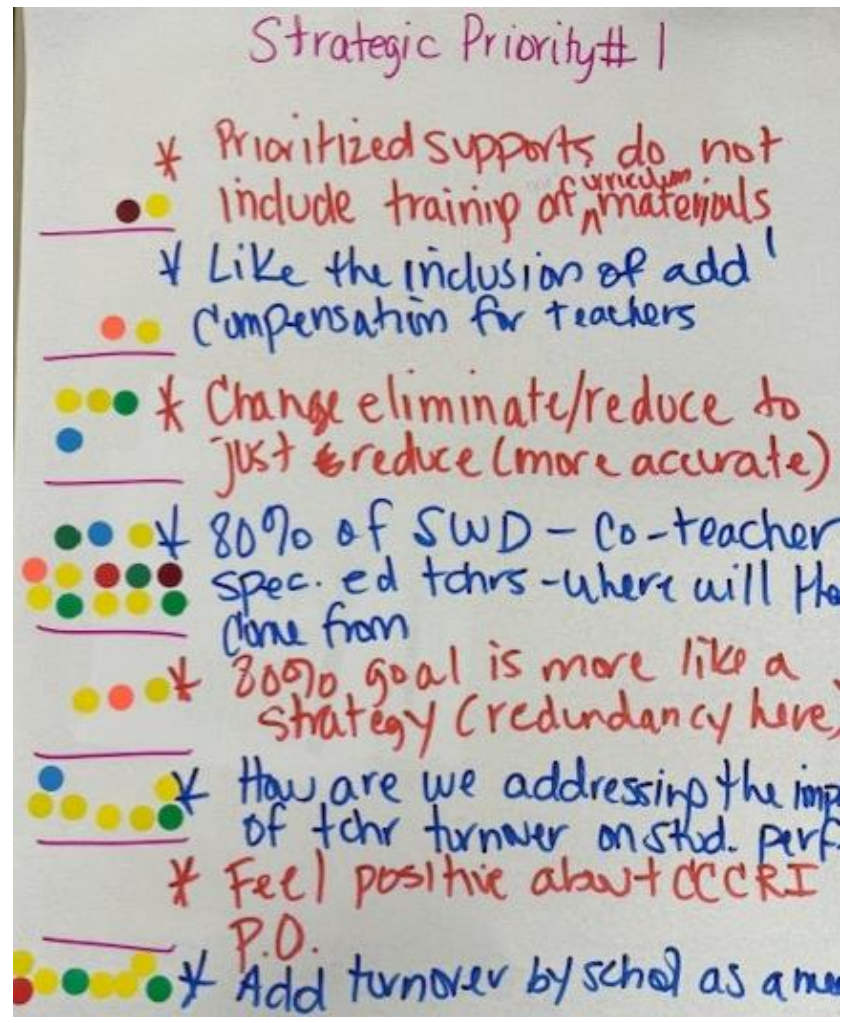 Strategic Priority # 1
* Prioritized supports do not
include training of ^ curriculum materials
* Like the inclusion of add'
compensation for teachers
* Change eliminate/reduce to
just reduce (more accurate)
* 80% of SWD - Co-teacher
spec. ed tchrs - where will
come from
* 80% goal is more like a
strategy (redundancy here)
* How are we addressing the
of tchr turnover on stud. perf
* Feel positive about CCCRI
P.O.
* Add turnover by school as a